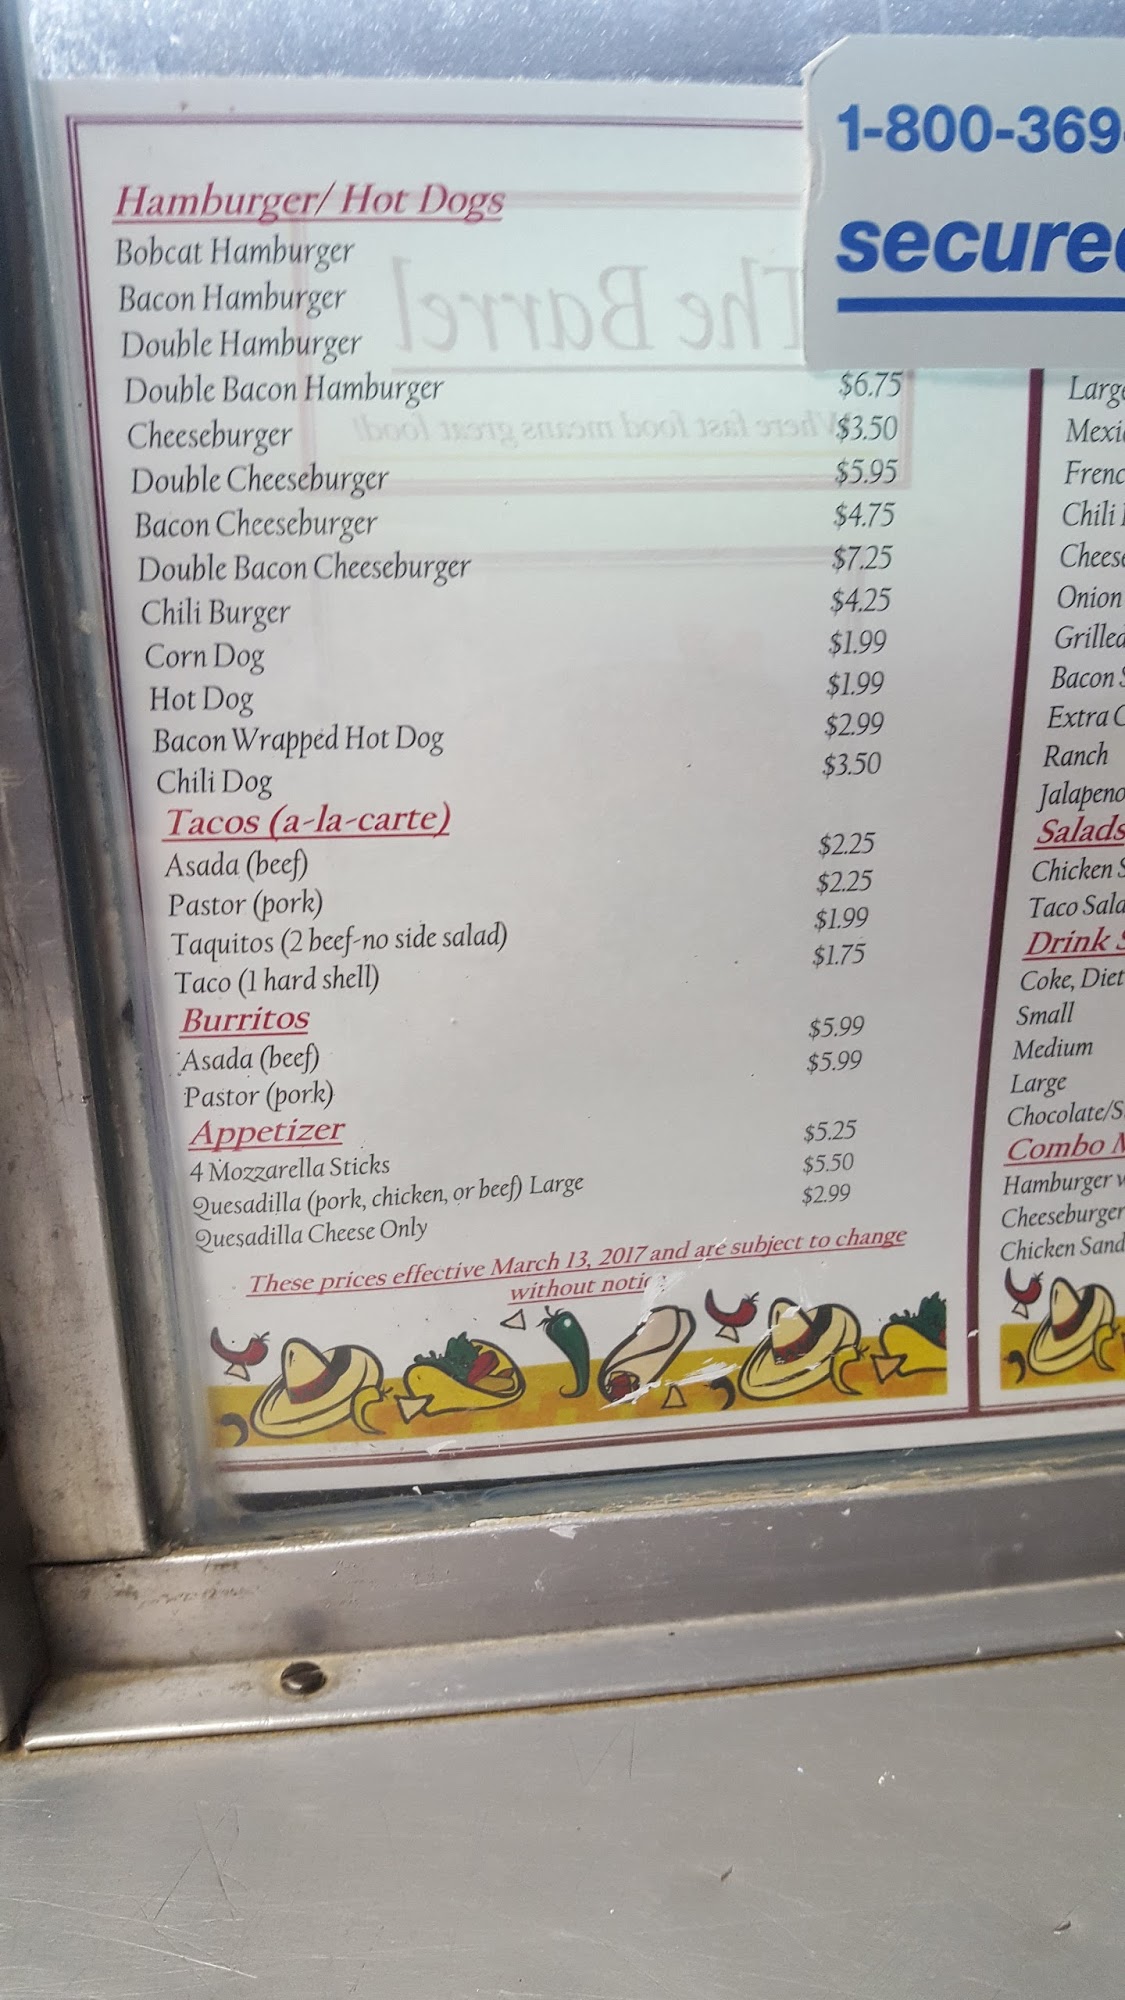 1-800-369-
secured
Hamburger/ Hot Dogs
Bobcat Hamburger
Bacon Hamburger
Double Hamburger
Double Bacon Hamburger $6.75
Cheeseburger $3.50
Double Cheeseburger $5.95
Bacon Cheeseburger $4.75
Double Bacon Cheeseburger $7.25
Chili Burger $4.25
Corn Dog $1.99
Hot Dog $1.99
Bacon Wrapped Hot Dog $2.99
Chili Dog $3.50
Tacos (a-la-carte)
Asada (beef) $2.25
Pastor (pork) $2.25
Taquitos (2 beef-no side salad) $1.99
Taco (1 hard shell) $1.75
Burritos
Asada (beef) $5.99
Pastor (pork) $5.99
Appetizer
4 Mozzarella Sticks $5.25
Quesadilla (pork, chicken, or beef) Large $5.50
Quesadilla Cheese Only $2.99
These prices effective March 13, 2017 and are subject to change
without notic
The Barrel
Where fast food means great food!
Large
Mexi
Frenc
Chili
Chees
Onion
Grilled
Bacon S
Extra C
Ranch
Jalapeno
Salads
Chicken S
Taco Sala
Drink S
Coke, Diet
Small
Medium
Large
Chocolate/S
Combo M
Hamburger w
Cheeseburger
Chicken Sand